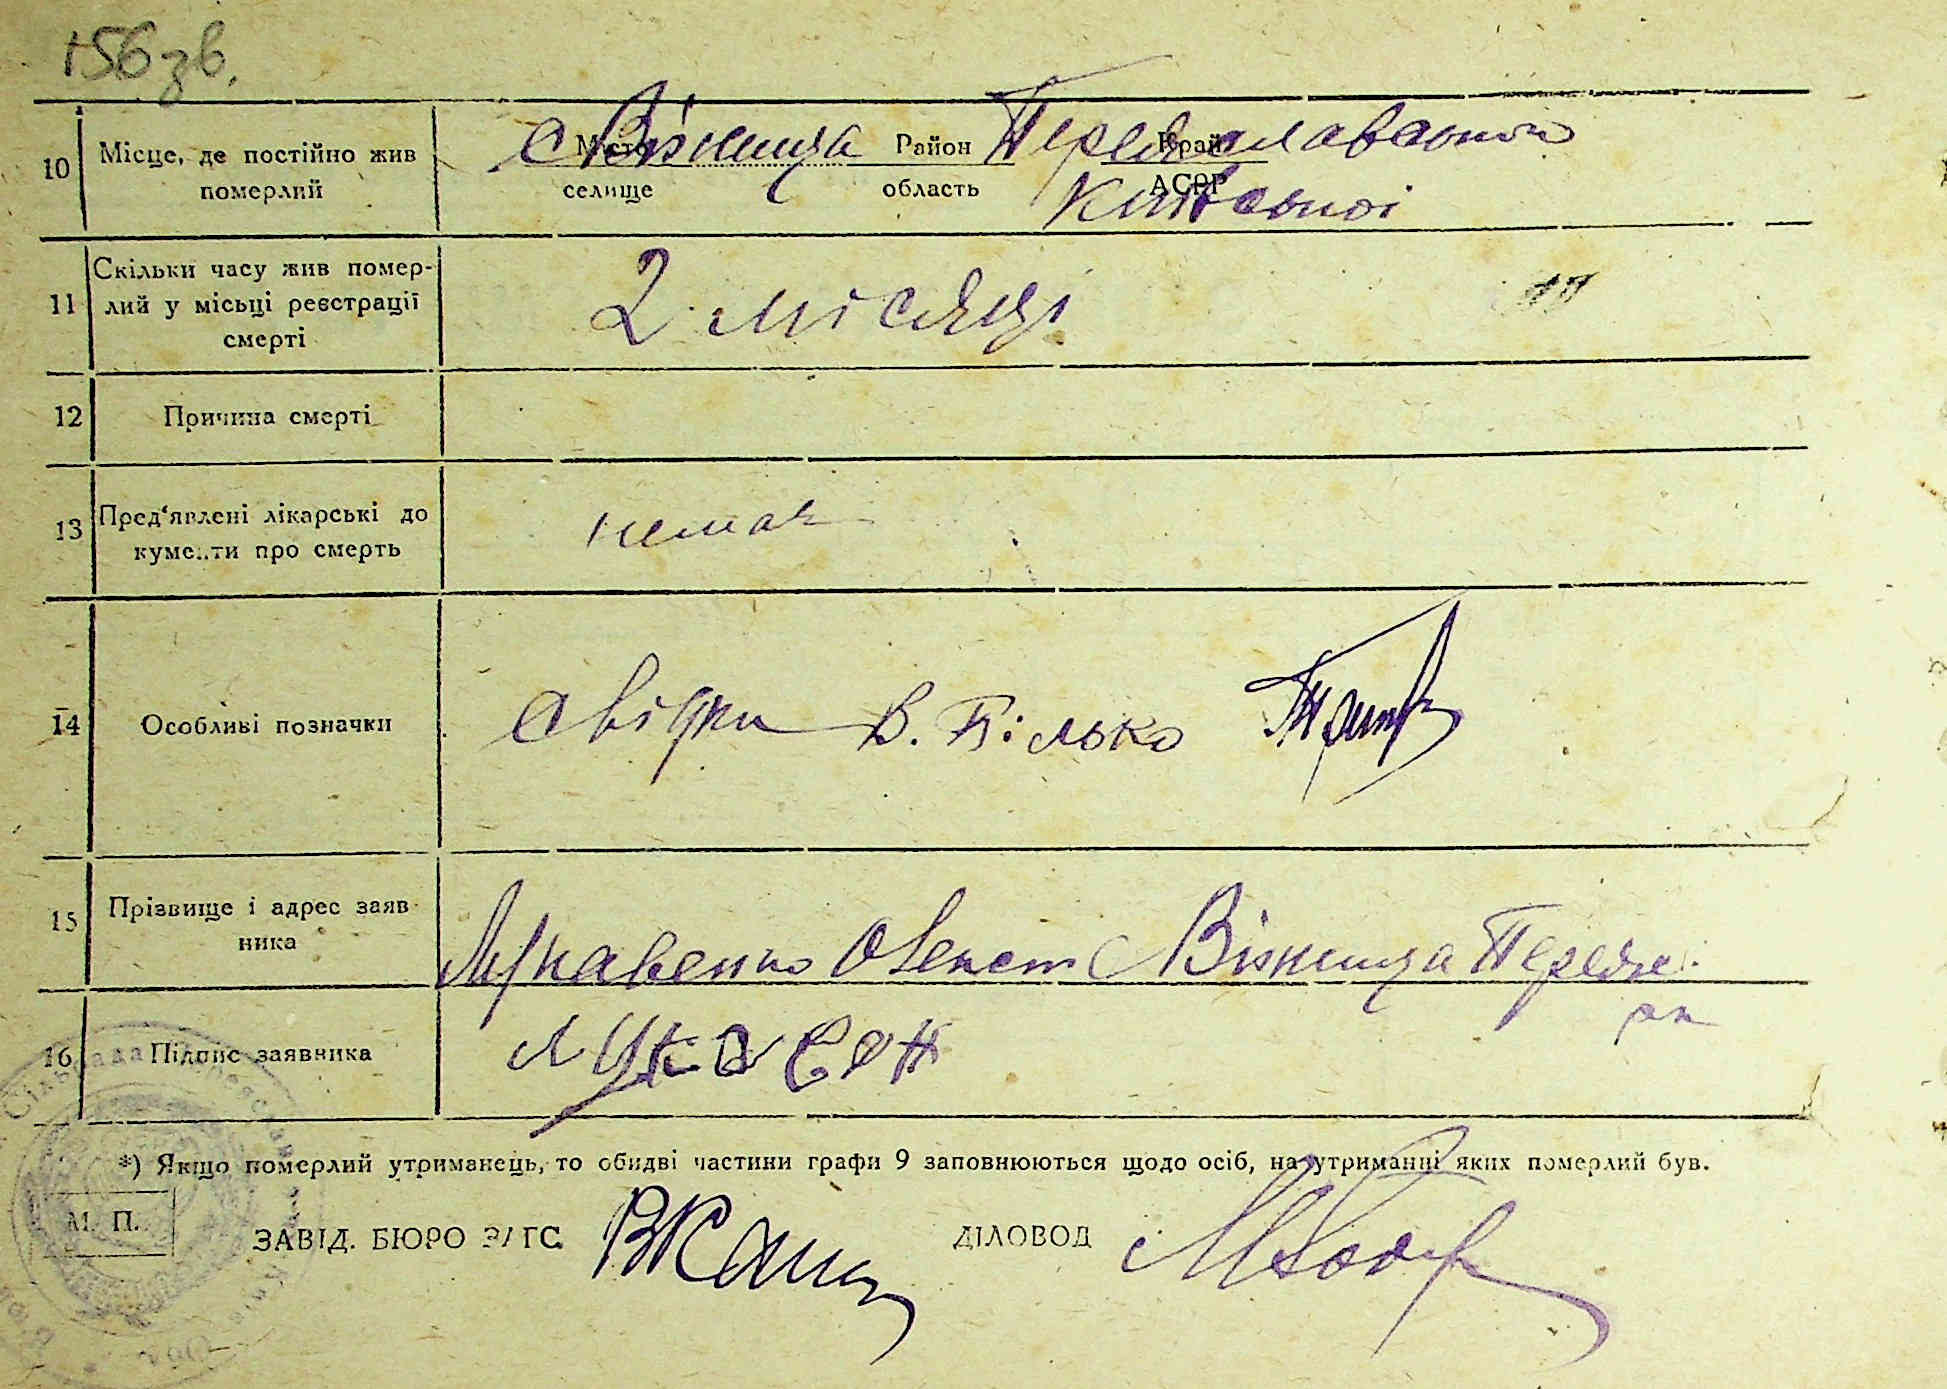 156 зв.
10 Місце, де постійно жив померлий
с Віненци Місто Район Переяславського Край
селище область АСРР
Київської
11 Скільки часу жив помер-
лий у місьці реєстрації
смерті
2 місяці
12 Причина смерті
13 Пред'явлені лікарські до
кументи про смерть
немає
14 Особливі позначки
свідки В. Білько
15 Прізвище і адрес заяв
ника
Лукавенко Олекст с Віненца Переясл.
рн
16 Підпис заявника
Лукавен
*) Якщо померлий утриманець, то обидві частини графи 9 заповнюються щодо осіб, на утриманні яких померлий був.
М. П.
ЗАВІД. БЮРО ЗАГС ДІЛОВОД